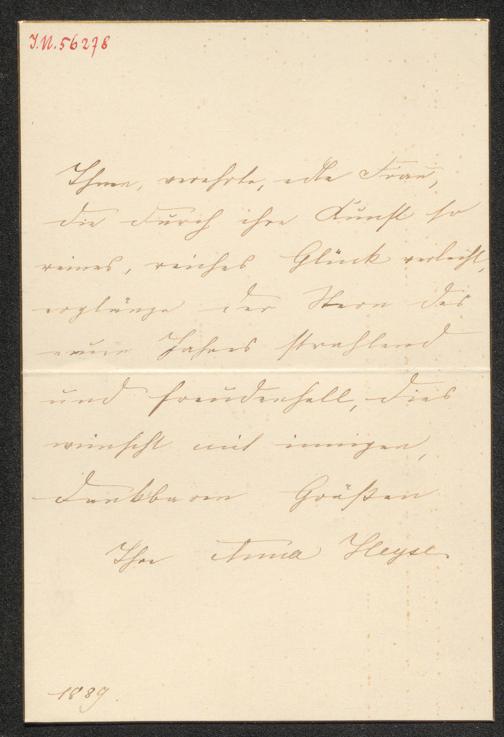 J.N. 56278
Ihnen, verehrte, edle Frau,
die durch ihre Kunst so
reines, reiches Glück verleiht,
erglänze der Stern des
neuen Jahres strahlend
und freudenhell, dies
wünscht mit innigen,
dankbaren Grüßen
Ihre Anna Heyse.
1889.